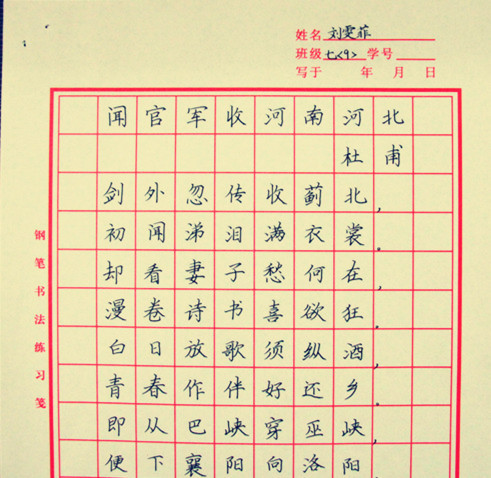 姓名 刘雯菲
班级 七<9> 学号
写于 年 月 日
闻官军收河南河北
杜甫
剑外忽传收蓟北,
初闻涕泪满衣裳。
却看妻子愁何在,
漫卷诗书喜欲狂.
白日放歌须纵酒,
青春作伴好还乡.
即从巴峡穿巫峡,
便下襄阳向洛阳
钢笔书法练习笺